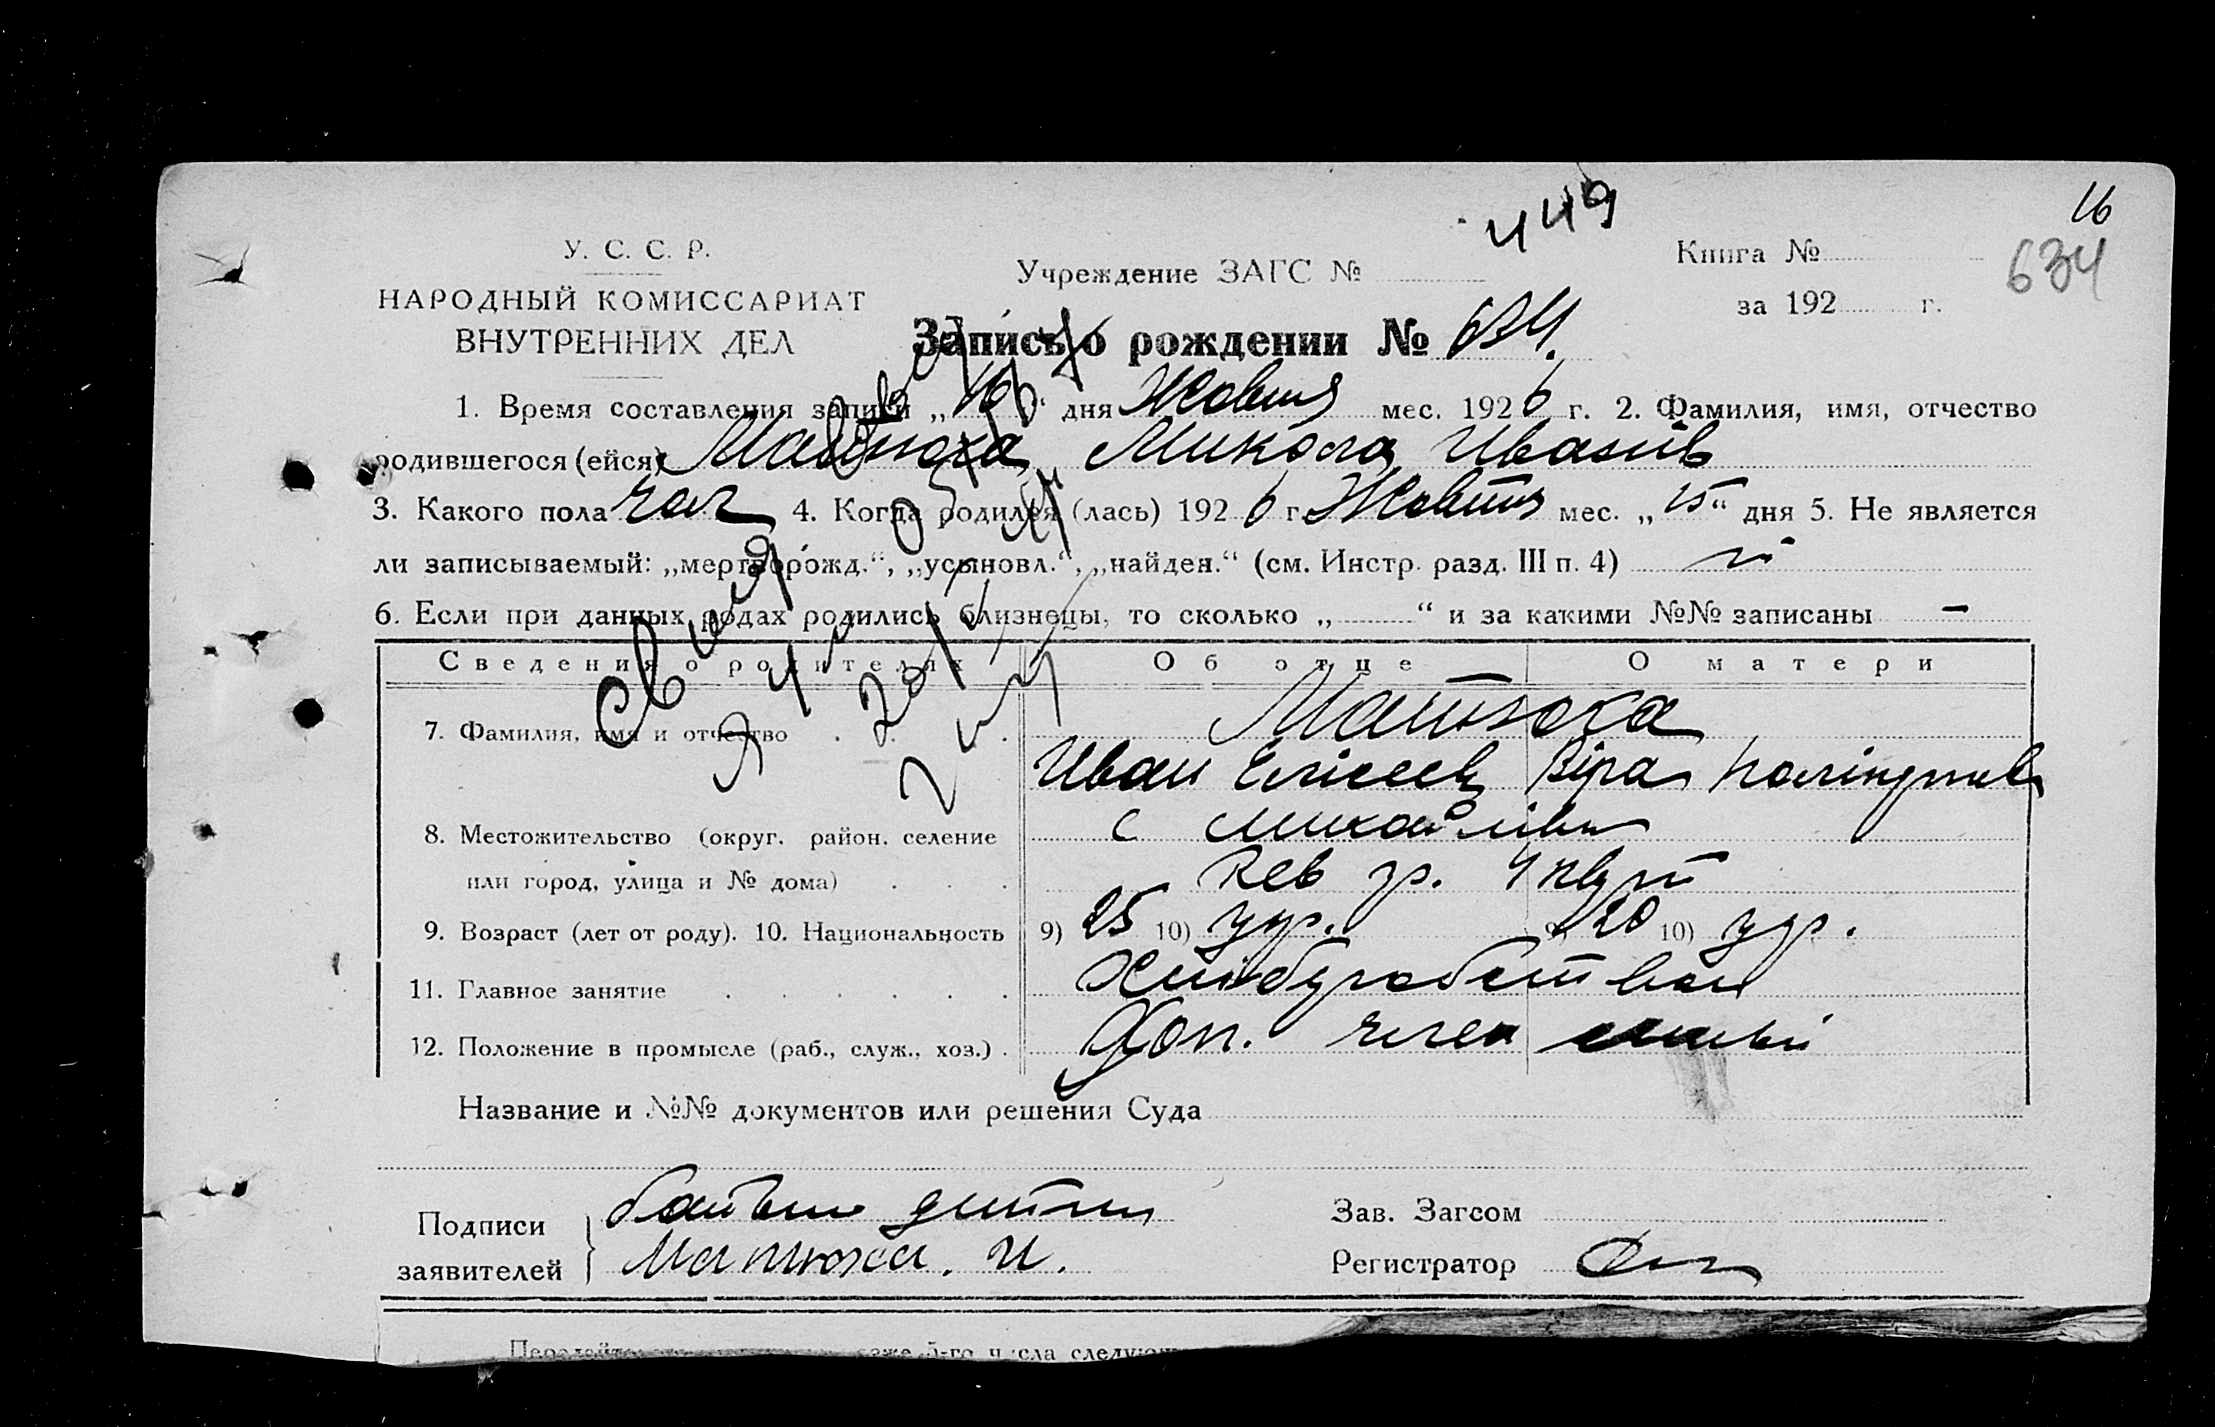 16
449
634
У. С. С. Р.
НАРОДНЫЙ КОМИССАРИАТ
ВНУТРЕННИХ ДЕЛ
Учреждение ЗАГС №
Книга №
за 192 г.
Запись о рождении № 634.
1. Время составления записи „16“ дня Жовтня мес. 1926 г. 2. Фамилия, имя, отчество
родившегося (ейся) Матюха Микола Иванів
3. Какого пола чол 4. Когда родился (лась) 1926 г. Жовтня мес. „15“ дня 5. Не является
ли записываемый: „мертворожд.“, „усыновл.“, „найден.“ (см. Инстр. разд. III п. 4) ні
6. Если при данных родах родились близнецы, то сколько „ “ и за какими №№ записаны –
Сведения о родителях Об отце О матери
7. Фамилия, имя и отчество Матюха
Иван Єлісеев Віра
8. Местожительство (округ, район, селение с Михайлівки
или город, улица и № дома)
9. Возраст (лет от роду). 10. Национальность 9) 25 10) укр. 9) 20 10) укр.
11. Главное занятие Хліборобством
12. Положение в промысле (раб., служ., хоз.) Доп. член
Название и №№ документов или решения Суда
Подписи
заявителей
батько дитини
Матюха. И.
Зав. Загсом
Регистратор